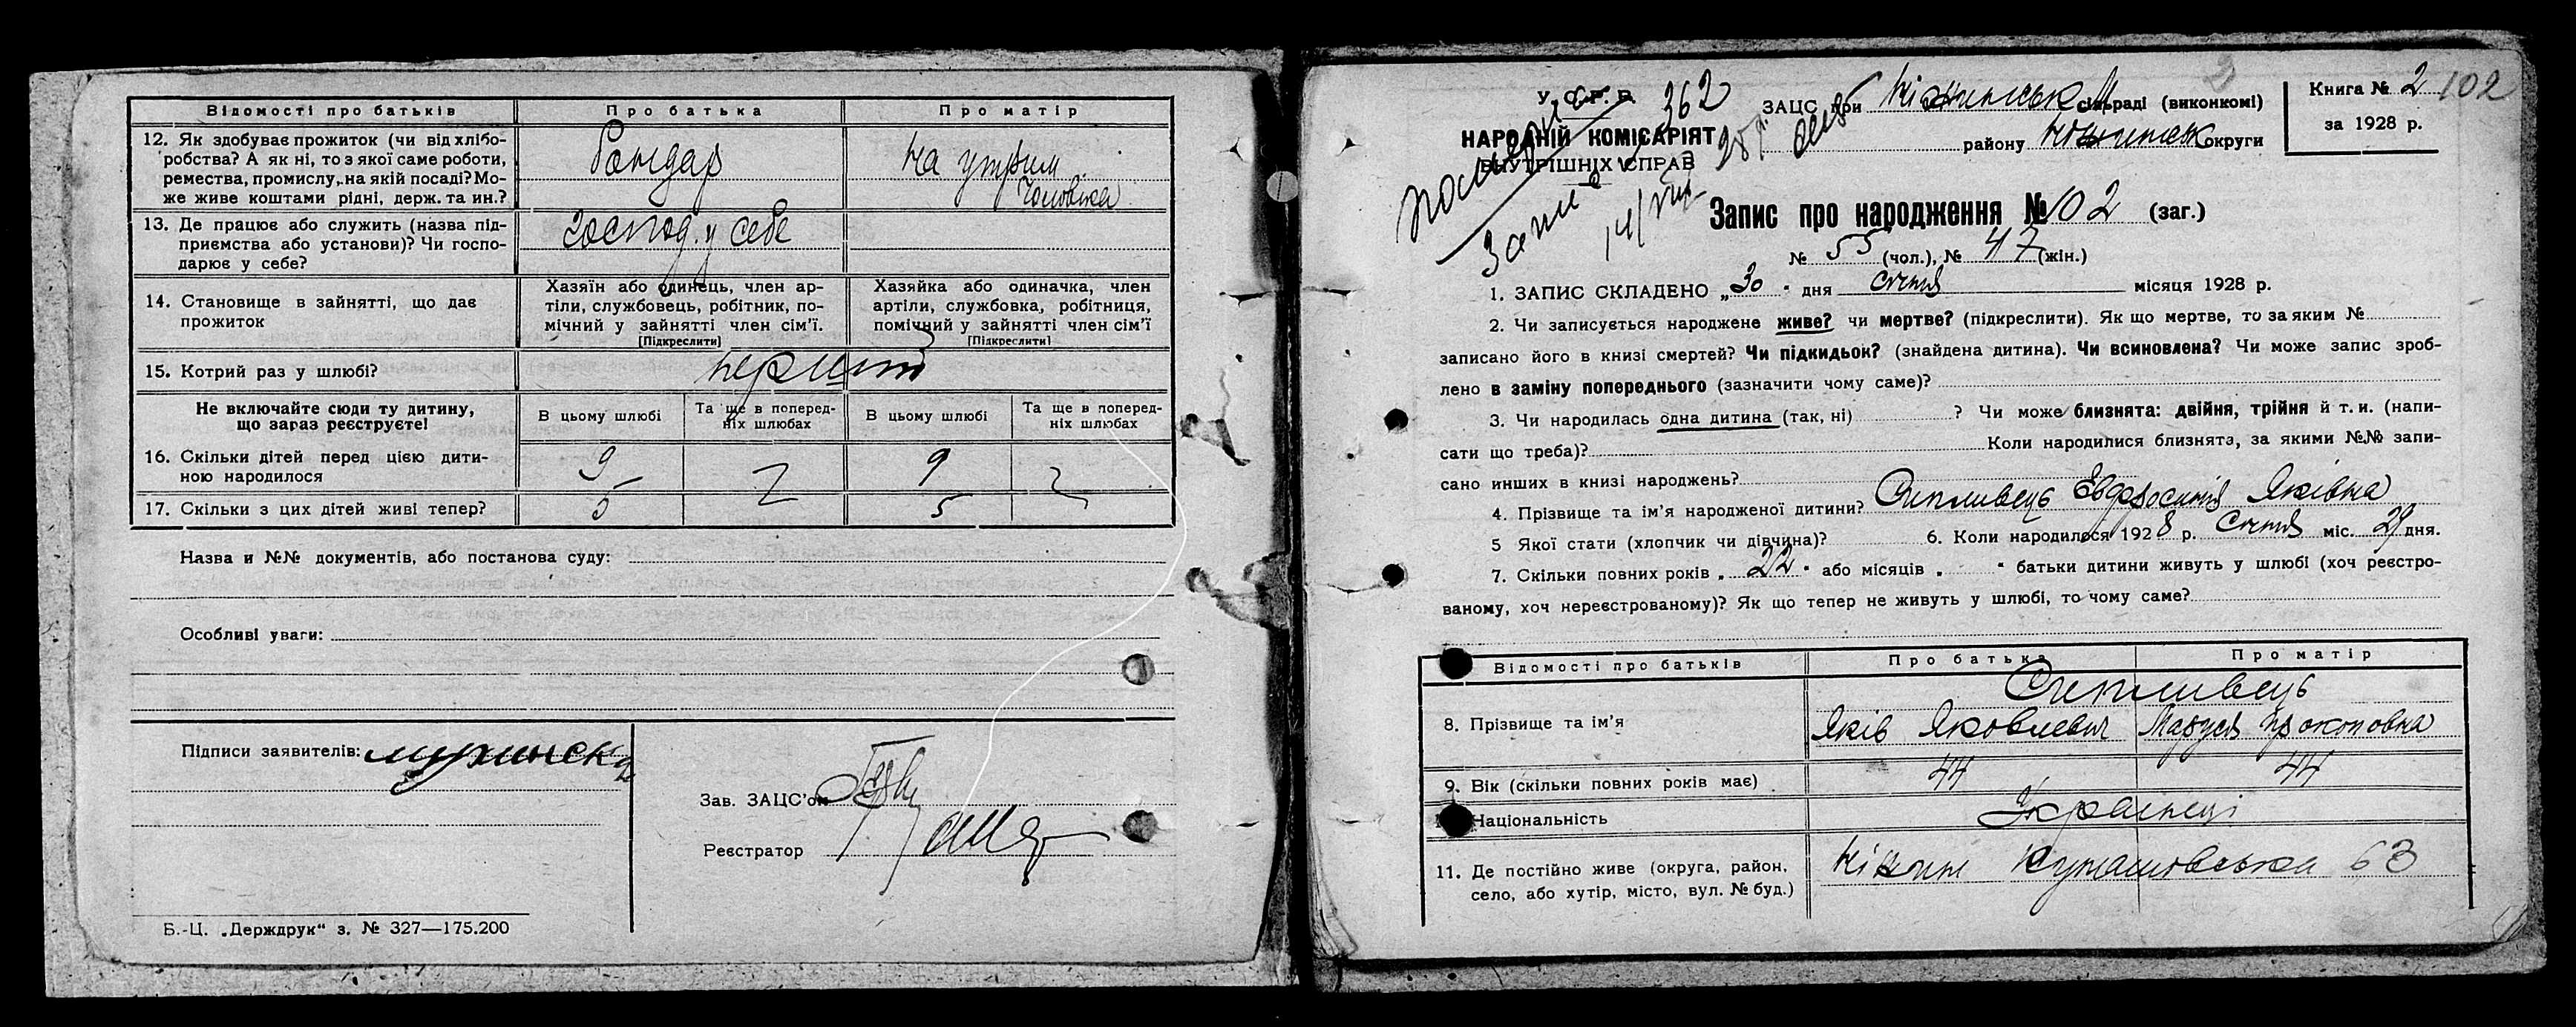 Відомості про батьків Про батька Про матір
12. Як здобуває прожиток (чи від хлібо-
робства? А як ні, то з якої саме роботи,
ремества, промислу, на якій посаді? Мо-
же живе коштами рідні, держ. та ин.?
Бондар
На утрим.
Чоловіка
13. Де працює або служить (назва під-
приємства або установи)? Чи госпо-
дарює у себе?
господ. у себе
14. Становище в зайнятті, що дає
прожиток
Хазяїн або одинець, член ар-
тіли, службовець, робітник, по-
мічний у зайнятті член сім'ї.
[Підкреслити]
Хазяйка або одиначка, член
артіли, службовка, робітниця,
помічний у зайнятті член сім'ї
[Підкреслити]
15. Котрий раз у шлюбі?
Не включайте сюди ту дитину,
що зараз реєструєте!
В цьому шлюбі
Та ще в поперед-
ніх шлюбах
В цьому шлюбі
Та ще в поперед-
ніх шлюбах
16. Скільки дітей перед цією дити-
ною народилося
9 9
17. Скільки з цих дітей живі тепер? 5 5
Назва и №№ документів, або постанова суду:
Особливі уваги:
Підписи заявителів:
Зав. ЗАЦС'ом
Реєстратор
Б.-Ц. „Держдрук" з. № 327—175.200
У. С. Р. Р.
НАРОДНІЙ КОМІСАРІЯТ
ВНУТРІШНІХ СПРАВ
362
ЗАЦС при Ніжинськ М сільраді (виконкомі)
району Ніжинськ округи
Книга № 2
за 1928 р.
102
Запис про народження № 102 (заг.)
№ 55 (чол.), № 47 (жін.)
1. ЗАПИС СКЛАДЕНО „30" дня січня місяця 1928 р.
2. Чи записується народжене живе? чи мертве? (підкреслити). Як що мертве, то за яким №
записано його в книзі смертей? Чи підкидьок? (знайдена дитина). Чи всиновлена? Чи може запис зроб-
лено в заміну попереднього (зазначити чому саме)?
3. Чи народилась одна дитина (так, ні) ? Чи може близнята: двійня, трійня й т. и. (напи-
сати що треба)? Коли народилися близнята, за якими №№ запи-
сано инших в книзі народжень?
4. Прізвище та ім'я народженої дитини? Сипливець Евфросинія Яківна
5 Якої стати (хлопчик чи дівчина)? 6. Коли народилося 1928 р. Січня міс. 29 дня.
7. Скільки повних років „ 22 " або місяців „ " батьки дитини живуть у шлюбі (хоч реєстро-
ваному, хоч нереєстрованому)? Як що тепер не живуть у шлюбі, то чому саме?
Відомості про батьків Про батька Про матір
Сипливець
8. Прізвище та ім'я Яків Яковлевич Маруся Прокоповна
9. Вік (скільки повних років має) 44 44
Національність Українці
11. Де постійно живе (округа, район,
село, або хутір, місто, вул. № буд.)
Ніжин Кунашовська 63